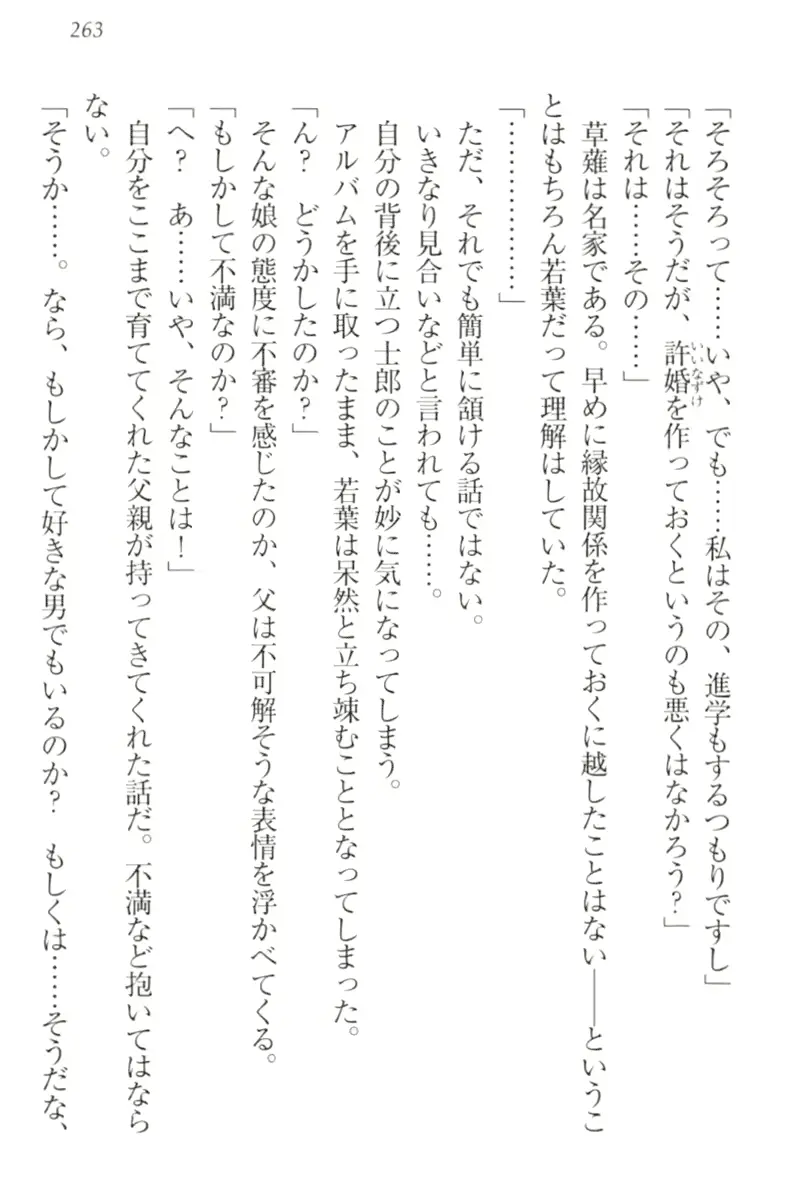 263
「そろそろって……いや、でも……私はその、進学もするつもりですし」
「それはそうだが、許婚を作っておくというのも悪くはなかろう？」
いいなずけ
「それは……その……」
草薙は名家である。早めに縁故関係を作っておくに越したことはない――というこ
とはもちろん若葉だって理解はしていた。
「………………」
ただ、それでも簡単に頷ける話ではない。
いきなり見合いなどと言われても……。
自分の背後に立つ士郎のことが妙に気になってしまう。
アルバムを手に取ったまま、若葉は呆然と立ち竦むこととなってしまった。
「ん？　どうかしたのか？」
そんな娘の態度に不審を感じたのか、父は不可解そうな表情を浮かべてくる。
「もしかして不満なのか？」
「へ？　あ……いや、そんなことは！」
自分をここまで育ててくれた父親が持ってきてくれた話だ。不満など抱いてはなら
ない。
「そうか……。なら、もしかして好きな男でもいるのか？　もしくは……そうだな、